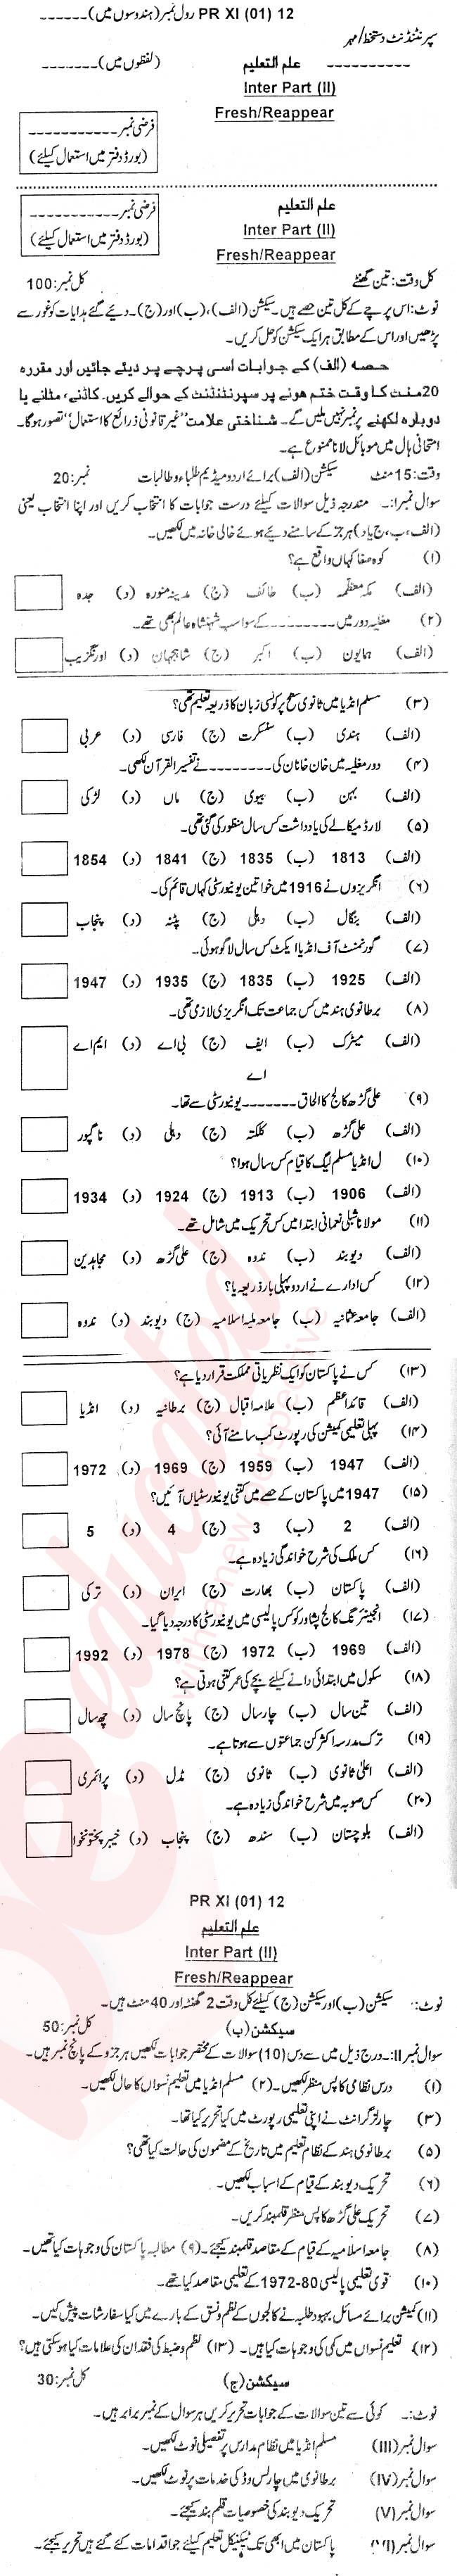 PR XI (01) 12 رول نمبر (ہندسوں میں)ـــــــــ
سپرنٹنڈنٹ دستخط/مہر
ـــــــــــــــ علم التعلیم (لفظوں میں)ـــــــــ
Inter Part (II)
Fresh/Reappear
فرضی نمبرـــــــــــــ
(بورڈ دفتر میں استعمال کیلئے)
علم التعلیم
Inter Part (II)
Fresh/Reappear
فرضی نمبرـــــــــــــ
(بورڈ دفتر میں استعمال کیلئے)
کل وقت: تین گھنٹے کل نمبر: 100
نوٹ: اس پرچے کے کل تین حصے ہیں۔ سیکشن (الف)، (ب) اور (ج)۔ دیئے گئے ہدایات کو غور سے
پڑھیں اور اس کے مطابق ہر ایک سیکشن کو حل کریں۔
حصہ (الف) کے جوابات اسی پرچے پر دیئے جائیں اور مقررہ
20منٹ کا وقت ختم ہونے پر سپرنٹنڈنٹ کے حوالے کریں۔ کاٹنے، مٹانے یا
دوبارہ لکھنے پر نمبر نہیں ملیں گے۔ شناختی علامت "غیر قانونی ذرائع کا استعمال" تصور ہوگا۔
امتحانی ہال میں موبائل لانا ممنوع ہے۔
وقت: 15 منٹ سیکشن (الف) برائے اردو میڈیم طلباء و طالبات نمبر: 20
سوال نمبرI:۔ مندرجہ ذیل سوالات کیلئے درست جوابات کا انتخاب کریں اور اپنا انتخاب یعنی
(الف، ب، ج یا د) ہر جز کے سامنے دیئے ہوئے خالی خانہ میں لکھیں۔
(۱) کوہ صفا کہاں واقع ہے؟
(الف) مکہ معظمہ (ب) طائف (ج) مدینہ منورہ (د) جدہ
(۲) مغلیہ دور میں ـــــــــ کے سوا سب شہنشاہ عالم بھی تھے۔
(الف) ہمایون (ب) اکبر (ج) شاہجہان (د) اورنگزیب
(۳) مسلم انڈیا میں ثانوی سطح پر کونسی زبان کا ذریعہ تعلیم تھی؟
(الف) ہندی (ب) سنسکرت (ج) فارسی (د) عربی
(۴) دور مغلیہ میں خان خانان کی ـــــــــ نے تفسیر القرآن لکھی۔
(الف) بہن (ب) بیوی (ج) ماں (د) لڑکی
(۵) لارڈ میکالے کی یادداشت کس سال منظور کی گئی تھی۔
(الف) 1813 (ب) 1835 (ج) 1841 (د) 1854
(۶) انگریزوں نے 1916 میں خواتین یونیورسٹی کہاں قائم کی۔
(الف) بنگال (ب) دہلی (ج) پٹنہ (د) پنجاب
(۷) گورنمنٹ آف انڈیا ایکٹ کس سال لاگو ہوئی۔
(الف) 1925 (ب) 1835 (ج) 1935 (د) 1947
(۸) برطانوی ہند میں کس جماعت تک انگریزی لازمی تھی۔
(الف) میٹرک (ب) ایف (ج) بی اے (د) ایم اے
اے
(۹) علی گڑھ کالج کا الحاق ـــــــــ یونیورسٹی سے تھا۔
(الف) علی گڑھ (ب) کلکتہ (ج) دہلی (د) ناگپور
(۱۰) ل انڈیا مسلم لیگ کا قیام کس سال ہوا؟
(الف) 1906 (ب) 1913 (ج) 1924 (د) 1934
(۱۱) مولانا شبلی نعمانی ابتدا میں کس تحریک میں شامل تھے۔
(الف) دیوبند (ب) ندوہ (ج) علی گڑھ (د) مجاہدین
(۱۲) کس ادارے نے اردو پہلی بار ذریعہ یا؟
(الف) جامعہ عثمانیہ (ب) جامعہ ملیہ اسلامیہ (ج) دیوبند (د) ندوہ
(۱۳) کس نے پاکستان کو ایک نظریاتی مملکت قرار دیا ہے؟
(الف) قائداعظم (ب) علامہ اقبال (ج) برطانیہ (د) انڈیا
(۱۴) پہلی تعلیمی کمیشن کی رپورٹ کب سامنے آئی؟
(الف) 1947 (ب) 1959 (ج) 1969 (د) 1972
(۱۵) 1947 میں پاکستان کے حصے میں کتنی یونیورسٹیاں آئیں؟
(الف) 2 (ب) 3 (ج) 4 (د) 5
(۱۶) کس ملک کی شرح خواندگی زیادہ ہے۔
(الف) پاکستان (ب) بھارت (ج) ایران (د) ترکی
(۱۷) انجینئرنگ کالج پشاور کو کس پالیسی میں یونیورسٹی کا درجہ دیا گیا۔
(الف) 1969 (ب) 1972 (ج) 1978 (د) 1992
(۱۸) سکول میں ابتدائی داخلے کیلئے بچے کی عمر کتنی ہوتی ہے؟
(الف) تین سال (ب) چار سال (ج) پانچ سال (د) چھ سال
(۱۹) ترک مدرسہ اکثر کن جماعتوں سے ہوتا ہے۔
(الف) اعلیٰ ثانوی (ب) ثانوی (ج) مڈل (د) پرائمری
(۲۰) کس صوبہ میں شرح خواندگی زیادہ ہے۔
(الف) بلوچستان (ب) سندھ (ج) پنجاب (د) خیبر پختونخوا
PR XI (01) 12
علم التعلیم
Inter Part (II)
Fresh/Reappear
نوٹ:۔ سیکشن (ب) اور سیکشن (ج) کیلئے کل وقت 2 گھنٹہ اور 40 منٹ ہیں۔
سیکشن (ب) کل نمبر: 50
سوال نمبر II:۔ درج ذیل میں سے دس (10) سوالات کے مختصر جوابات لکھیں ہر جزو کے پانچ نمبر ہیں۔
(۱) درس نظامی کا پس منظر لکھیں۔ (۲) مسلم انڈیا میں تعلیم نسواں کا حال لکھیں۔
(۳) چارلز گرانٹ نے اپنی تعلیمی رپورٹ میں کیا تحریر کیا تھا۔
(۵) برطانوی ہند کے نظام تعلیم میں تاریخ کے مضمون کی حالت کیا تھی؟
(۶) تحریک دیوبند کے قیام کے اسباب لکھیں۔
(۷) تحریک علی گڑھ کا پس منظر قلمبند کریں۔
(۸) جامعہ اسلامیہ کے قیام کے مقاصد قلمبند کیجئے۔ (۹) مطالبہ پاکستان کی وجوہات کیا تھیں۔
(۱۰) قومی تعلیمی پالیسی 80-1972 کے تعلیمی مقاصد کیا تھے۔
(۱۱) کمیشن برائے مسائل بہبود طلبہ نے کالجوں کے نظم و نسق کے بارے میں کیا سفارشات پیش کیں۔
(۱۲) تعلیم نسواں میں کمی کی وجوہات کیا ہیں۔ (۱۳) نظم و ضبط کی فقدان کی علامات کیا ہو سکتی ہیں؟
سیکشن (ج) کل نمبر: 30
نوٹ:۔ کوئی سے تین سوالات کے جوابات تحریر کریں ہر سوال کے نمبر برابر ہیں۔
سوال نمبر (III) مسلم انڈیا میں نظام مدارس پر تفصیلی نوٹ لکھیں۔
سوال نمبر (IV) برطانوی میں چارلس وڈ کی خدمات پر نوٹ لکھیں۔
سوال نمبر (V) تحریک دیوبند کی خصوصیات قلم بند کیجئے۔
سوال نمبر (VI) پاکستان میں ابھی تک ٹیکنیکل تعلیم کیلئے جو اقدامات کئے گئے ہیں تحریر کیجئے۔